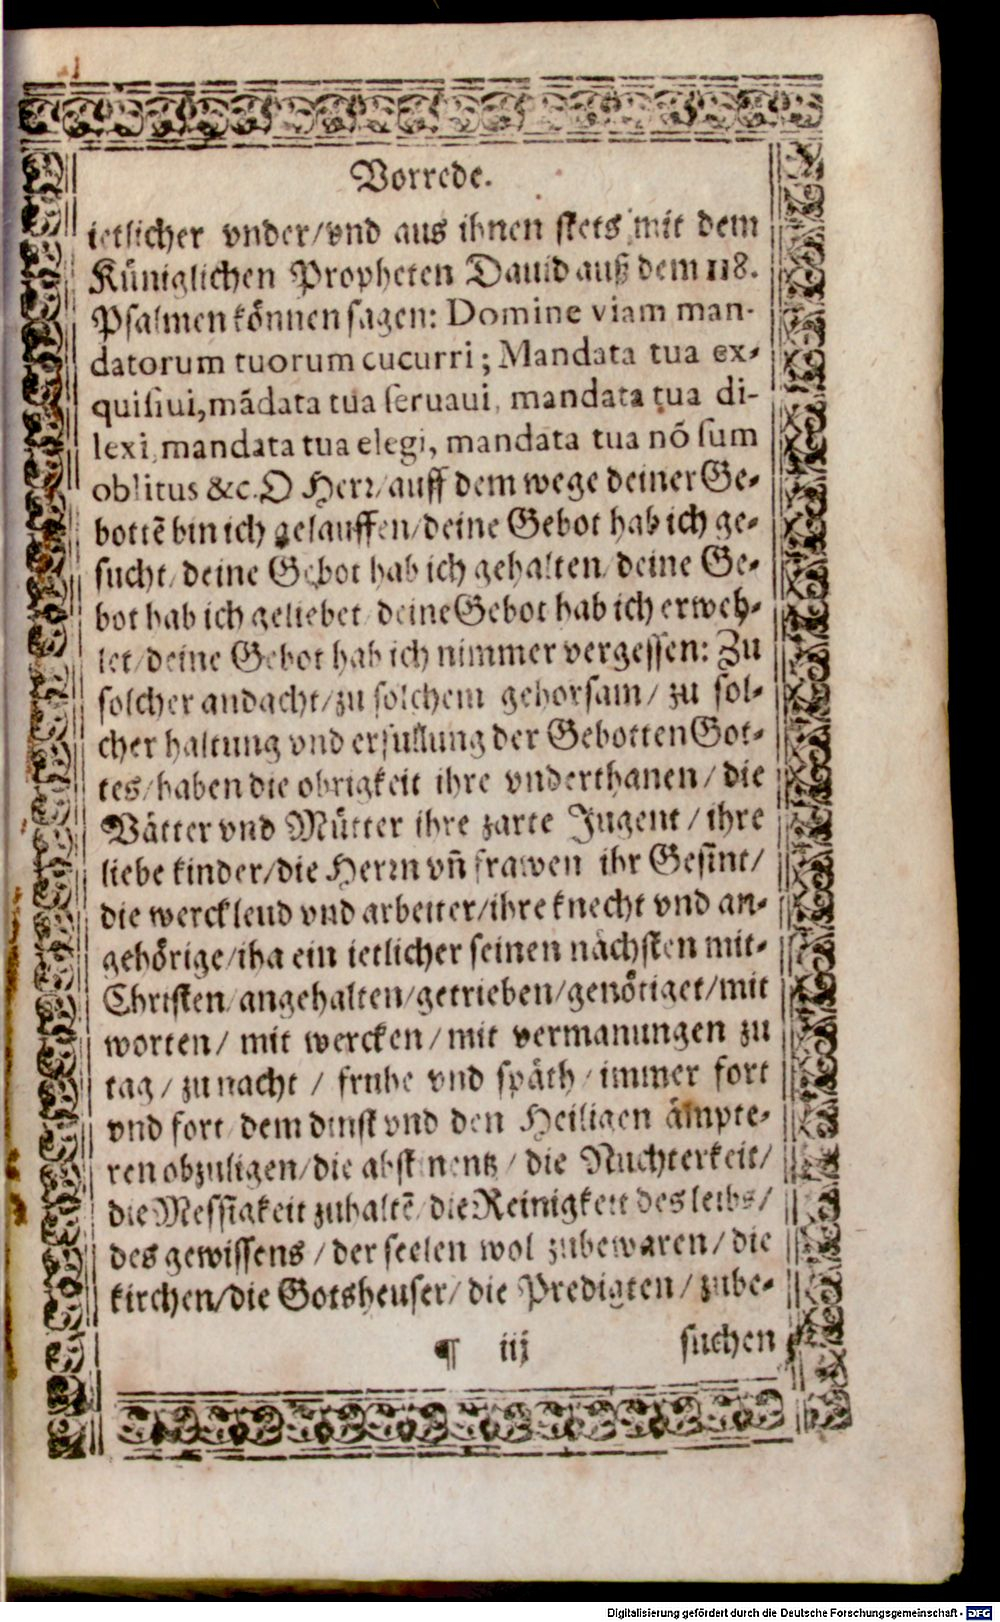 Vorrede.
ietlicher vnder/vnd aus ihnen stets mit dem
Küniglichen Propheten Dauid auß dem 118.
Psalmen können sagen: Domine viam man-
datorum tuorum cucurri; Mandata tua ex-
quisiui, mãdata tua seruaui, mandata tua di-
lexi, mandata tua elegi, mandata tua nõ sum
oblitus &c. O Herr/auff dem wege deiner Ge-
bottẽ bin ich gelauffen/deine Gebot hab ich ge-
sucht/deine Gebot hab ich gehalten/deine Ge-
bot hab ich geliebet/deine Gebot hab ich erweh-
let/deine Gebot hab ich nimmer vergessen: Zu
solcher andacht/zu solchem gehorsam/ zu sol-
cher haltung vnd erfüllung der Gebotten Got-
tes/haben die obrigkeit ihre vnderthanen/ die
Vätter vnd Mütter ihre zarte Jugent/ ihre
liebe kinder/die Herrn vñ frawen ihr Gesint/
die werckleud vnd arbeiter/ihre knecht vnd an-
gehörige/iha ein ietlicher seinen nächsten mit-
Christen/angehalten/getrieben/genötiget/mit
worten/ mit wercken/mit vermanungen zu
tag/ zu nacht / fruhe vnd späth/immer fort
vnd fort/dem dinst vnd den Heiligen ämpte-
ren obzuligen/die abstinentz/ die Nuchterkeit/
die Messigkeit zuhaltẽ/die Reinigkeit des leibs/
des gewissens/der seelen wol zubewaren/die
kirchen/die Gotsheuser/ die Predigten/ zube-
¶ iij suchen
Digitalisierung gefördert durch die Deutsche Forschungsgemeinschaft - DFG